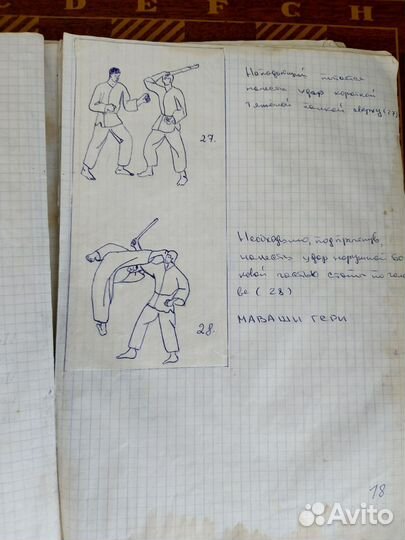 C D E F G H
Нападающий пытается
нанести удар короткой
тяжелой палкой сверху (27)
27.
Необходимо, подпрыгнув,
нанести удар наружной бо
ковой частью стопы по голо
ве (28)
28.
МАВАШИ ГЕРИ
18
Avito